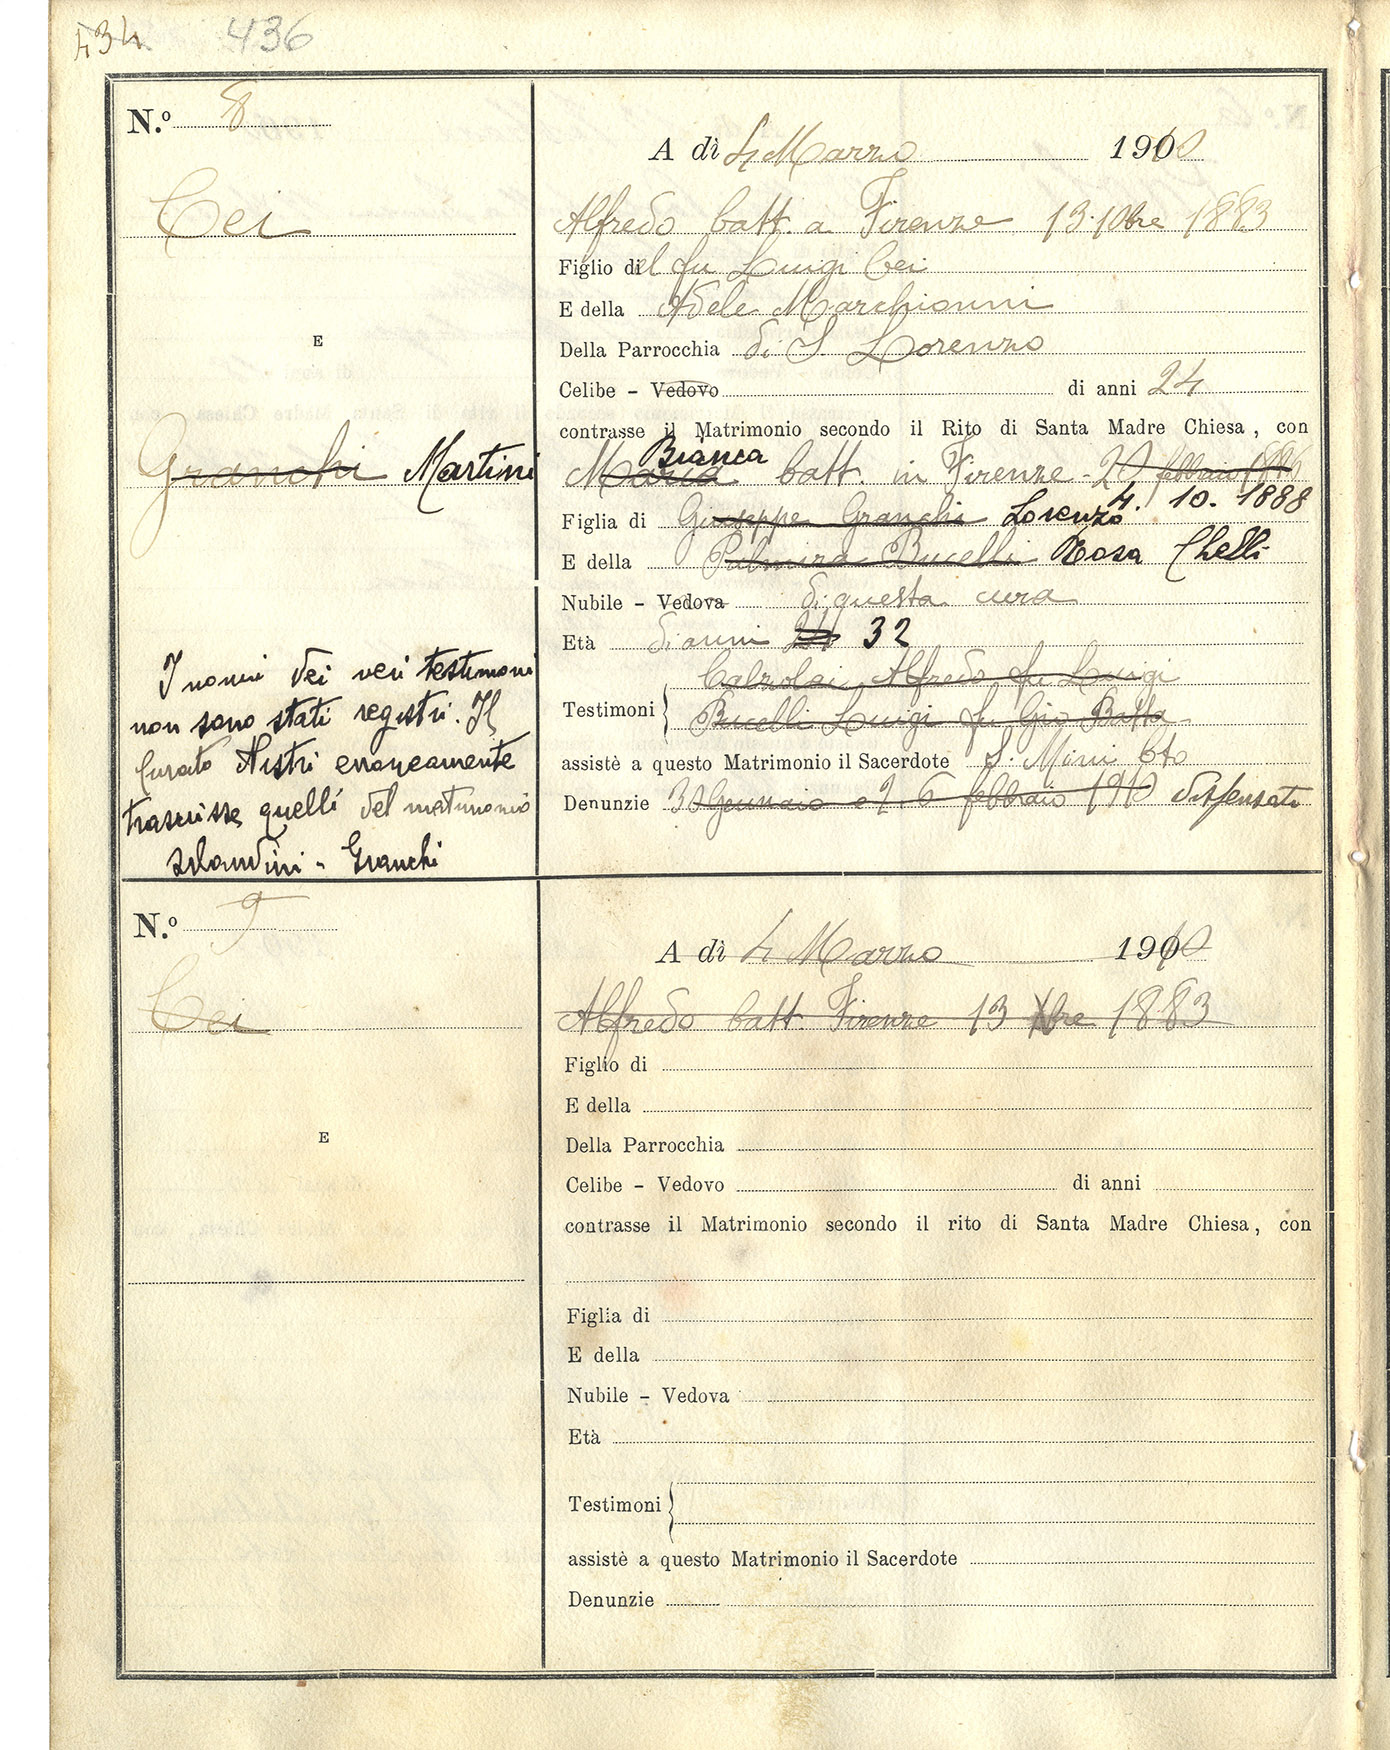 434 436
N.º 8
A dì 4 Marzo 1910
Cei
Alfredo batt. a Firenze 13. 10bre 1883
Figlio del fu Luigi Cei
E della Adele Marchionni
E
Della Parrocchia di S. Lorenzo
Celibe - Vedovo di anni 24
contrasse il Matrimonio secondo il Rito di Santa Madre Chiesa, con
Bianca
Granchi Martini
Maria batt. in Firenze - febbraio
4. 10. 1888
Figlia di Giuseppe Granchi Lorenzo
E della Palmira Bucelli Rosa Chelli
Nubile - Vedova di questa cura
Età di anni 32
Calzolai Alfredo fu Luigi
Testimoni
Bucelli Luigi fu Gio Batta
assistè a questo Matrimonio il Sacerdote S. Mini
Denunzie 30 Gennaio 2. 6 febbraio 1910 dispensati
I nomi dei veri testimoni
non sono stati registri. Il
Curato Nistri erroneamente
trascrisse quelli del matrimonio
Orlandini - Granchi
N.º 9
A dì 4 Marzo 1910
Cei
Alfredo batt. Firenze 13 Xbre 1883
Figlio di
E della
E
Della Parrocchia
Celibe - Vedovo di anni
contrasse il Matrimonio secondo il rito di Santa Madre Chiesa, con
Figlia di
E della
Nubile - Vedova
Età
Testimoni
assistè a questo Matrimonio il Sacerdote
Denunzie